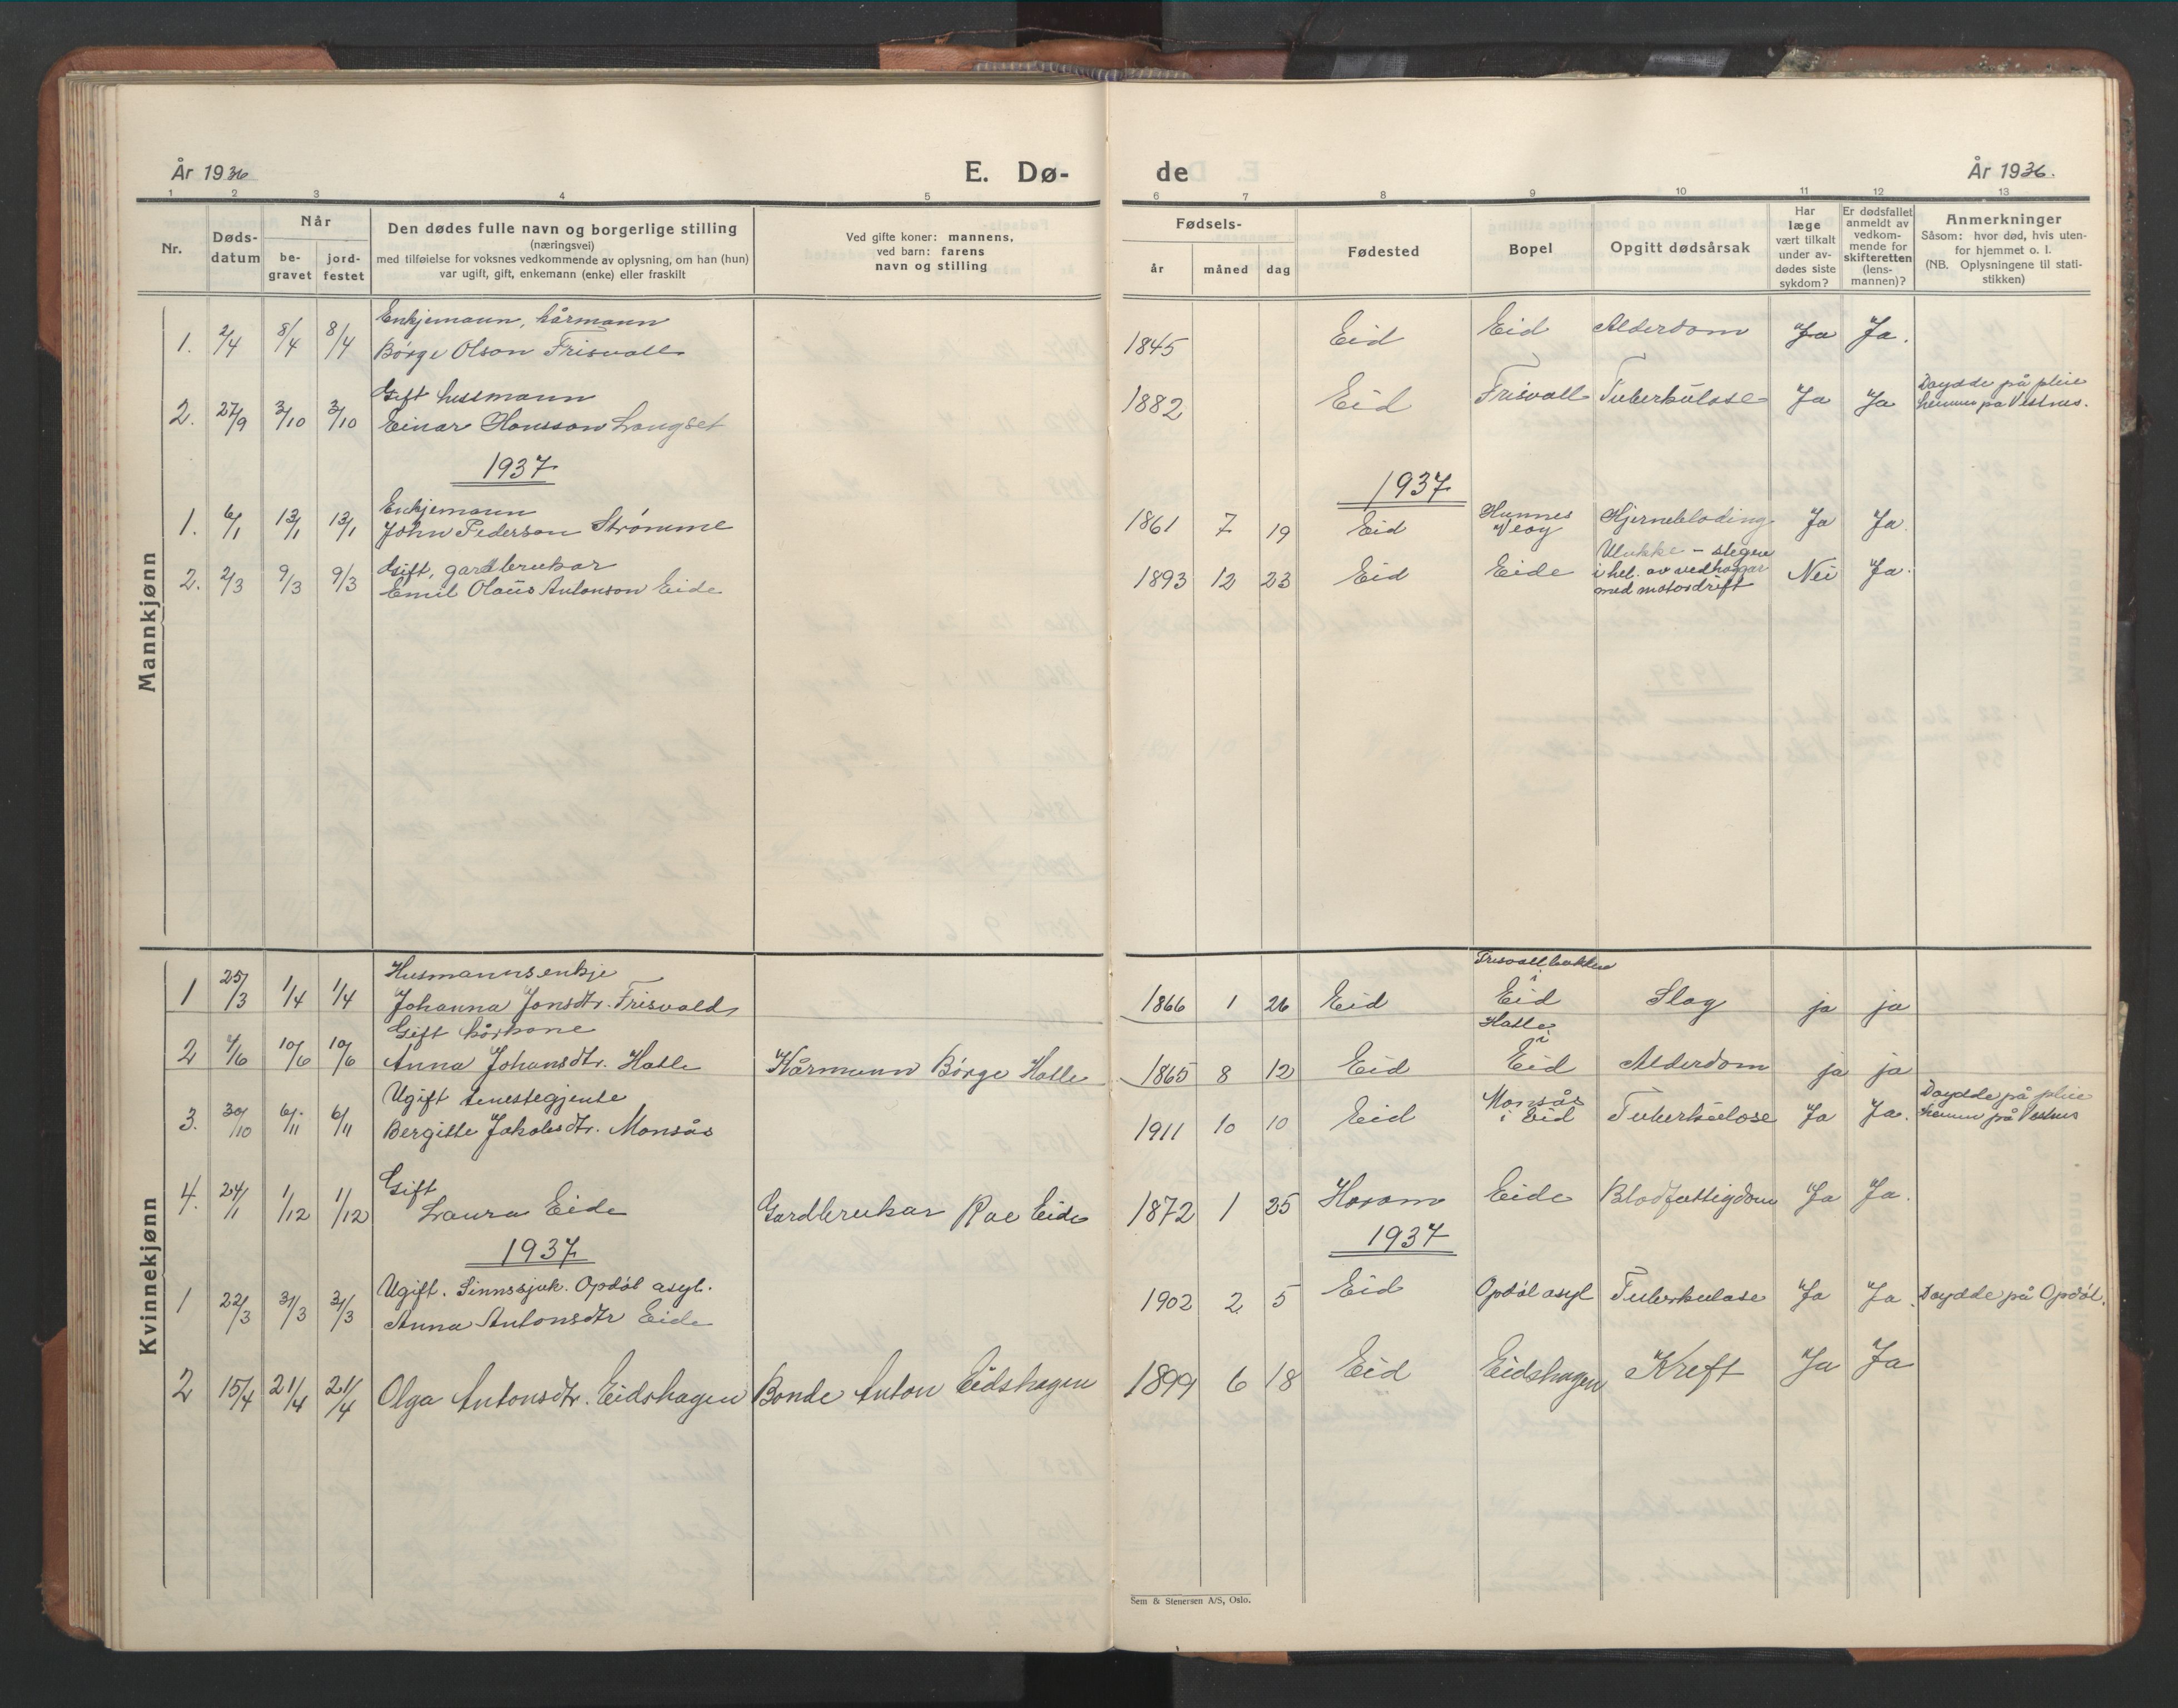 År 1936
E. Dø-
de
År 1936.
1 2 3 4 5 6 7 8 9 10 11 12 13
Nr.
Døds-
datum
Når
be-
gravet
jord-
festet
Den dødes fulle navn og borgerlige stilling
(næringsvei)
med tilføielse for voksnes vedkommende av oplysning, om han (hun)
var ugift, gift, enkemann (enke) eller fraskilt
Ved gifte koner: mannens,
ved barn: farens
navn og stilling
Fødsels-
år
måned
dag
Fødested
Bopel
Opgitt dødsårsak
Har
læge
vært tilkalt
under av-
dødes siste
sykdom?
Er dødsfallet
anmeldt av
vedkom-
mende for
skifteretten
(lens-
mannen)?
Anmerkninger
Såsom: hvor død, hvis uten-
for hjemmet o. l.
(NB. Oplysningene til stati-
stikken)
Mannkjønn
Enkjemann, kårmann
1. 2/4 8/4 8/4 Børge Olson Frisvoll 1845 Eid Eid Alderdom Ja Ja.
Gift husmann
2. 27/9 3/10 3/10 Einar Hansson Langset 1882 Eid Frisvoll Tuberkulose Ja Ja
Døydde på pleie
heimen på Vestnes.
1937 1937
Enkjemann
1. 6/1 13/1 13/1 John Pederson Strømme 1861 7 19 Eid Hunnes
Veøy Hjernebløding Ja Ja.
Gift, gardbrukar
2. 2/3 9/3 9/3 Emil Olaus Antonson Eide 1893 12 23 Eid Eide
Ulukke - slegen
i hel. av vedhoggar
med motordrift Nei Ja.
Kvinnekjønn
Husmannsenkje
1 25/3 1/4 1/4 Johanna Jonsdtr. Frisvold 1866 1 26 Eid
Frisvollbakken
i
Eid Slag ja ja
Gift kårkone
2 4/6 10/6 10/6 Anna Johansdtr. Hatle Kårmann Børge Hatle 1865 8 12 Eid
Hatle
i
Eid Alderdom ja ja
Ugift tenestegjente
3. 30/10 6/11 6/11 Bergitte Jakobsdtr. Monsås 1911 10 10 Eid
Monsås
i Eid Tuberkulose Ja Ja.
Døydde på pleie
heimen på Vestnes
Gift
4. 24/1 1/12 1/12 Laura Eide Gardbrukar Eide 1872 1 25 Haram Eide Blodfattigdom Ja Ja.
1937 1937
Ugift. Sinnssjuk. Opdøl asyl.
1 22/3 31/3 31/3 Anna Antonsdtr Eide 1902 2 5 Eid Opdøl asyl Tuberkulose Ja Ja. Døydde på Opdøl.
2 15/4 21/4 21/4 Olga Antonsdtr. Eidshagen Bonde Anton Eidshagen 1899 6 18 Eid Eidshagen Kreft Ja Ja
Sem & Stenersen A/S, Oslo.